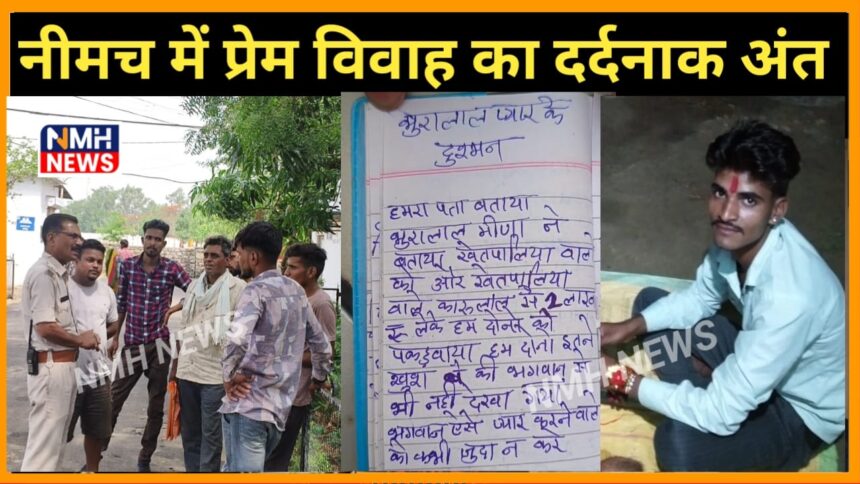 नीमच में प्रेम विवाह का दर्दनाक अंत
NMH
NEWS
भुरालाल प्यार के
दुश्मन
हमरा पता बताया
भुरालाल मीणा ने
बताया खेतपालिया वाले
को और खेतपालिया
वाले कारुलाल से 2 लाख
रु लेके हम दोनो को
पकड़वाया हम दोना इतने
खुश थे की भगवान से
भी नही देखा गया
भगवान ऐसे प्यार करने वाले
को कभी जुदा न करे
NMH NEWS
NMH NEWS
NMH NEWS